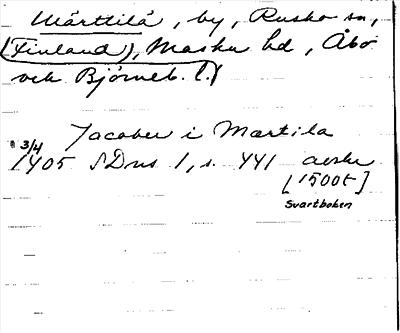 Märttilä, by, Rusko sn,
(Finland), Masku hd, Åbo
och Björneb. l.
Jacober i Martila
3/4
1405 SDns 1, s. 441 avskr
[1500t]
Svartboken